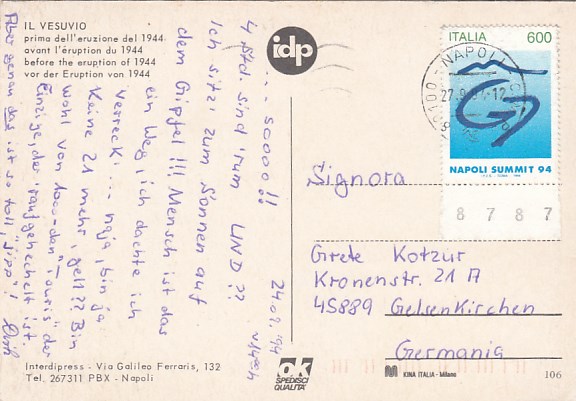 IL VESUVIO
prima dell'eruzione del 1944
avant l'éruption du 1944
before the eruption of 1944
vor der Eruption von 1944
idp
ITALIA 600
NAPOLI
NAPOLI SUMMIT 94
8 7 8 7
24.09.'94
... soooo!!
4 Std. sind 'rum UND??
Ich sitz' zum Sonnen auf
dem Gipfel!!! Mensch ist das
ein Weg, ich dachte ich
verreck'... naja, bin ja
Keine 21 mehr, gell?? Bin
wohl von 1000-den "-ouris" der
Einzige, der 'raufgehechelt ist.
Aber genau das ist so toll, "Jipp"!
Signora
Grete Kotzur
Kronenstr. 21 A
45889 Gelsenkirchen
Germania
Interdipress - Via Galileo Ferraris, 132
Tel. 267311 PBX - Napoli
OK
SPEDISCI
QUALITA'
KINA ITALIA - Milano
106